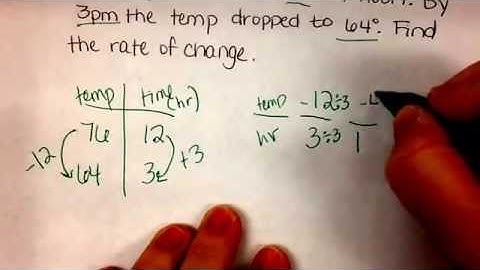 By
3pm the temp dropped to 64°. Find
the rate of change.
temp time(hr)
76 12
64 3
-12 +3
temp -12÷3
hr 3÷3 1